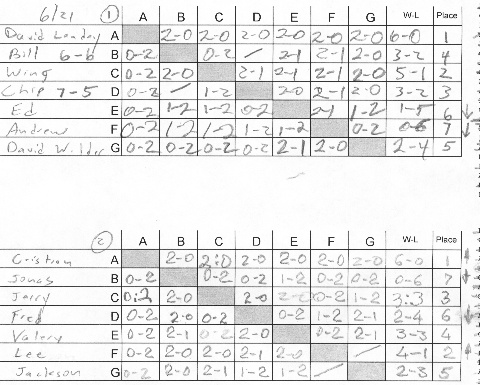 6/21 ① A B C D E F G W-L Place
David Londay A 2-0 2-0 2-0 2-0 2-0 2-0 6-0 1
Bill 6-6 B 0-2 0-2 / 2-1 2-1 2-0 3-2 4
Wing C 0-2 2-0 2-1 2-1 2-1 2-0 5-1 2
Chip 7-5 D 0-2 / 1-2 2-0 2-1 2-0 3-2 3
Ed E 0-2 1-2 1-2 0-2 2-1 1-2 1-5 6 ↓
Andrew F 0-2 1-2 1-2 1-2 1-2 0-2 0-6 7 ↓
David Wilder G 0-2 0-2 0-2 0-2 2-1 2-0 2-4 5
② A B C D E F G W-L Place
Cristian A 2-0 2:0 2-0 2-0 2-0 2-0 6-0 1
Jonas B 0-2 0-2 0-2 1-2 0-2 0-2 0-6 7
Jerry C 0:2 2-0 2-0 2-0 0-2 1-2 3:3 3
Fred D 0-2 2-0 0-2 0-2 1-2 2-1 2-4 6
Valery E 0-2 2-1 0-2 2-0 0-2 2-1 3-3 4
Lee F 0-2 2-0 2-0 2-1 2-0 / 4-1 2
Jackson G 0-2 2-0 2-1 1-2 1-2 / 2-3 5